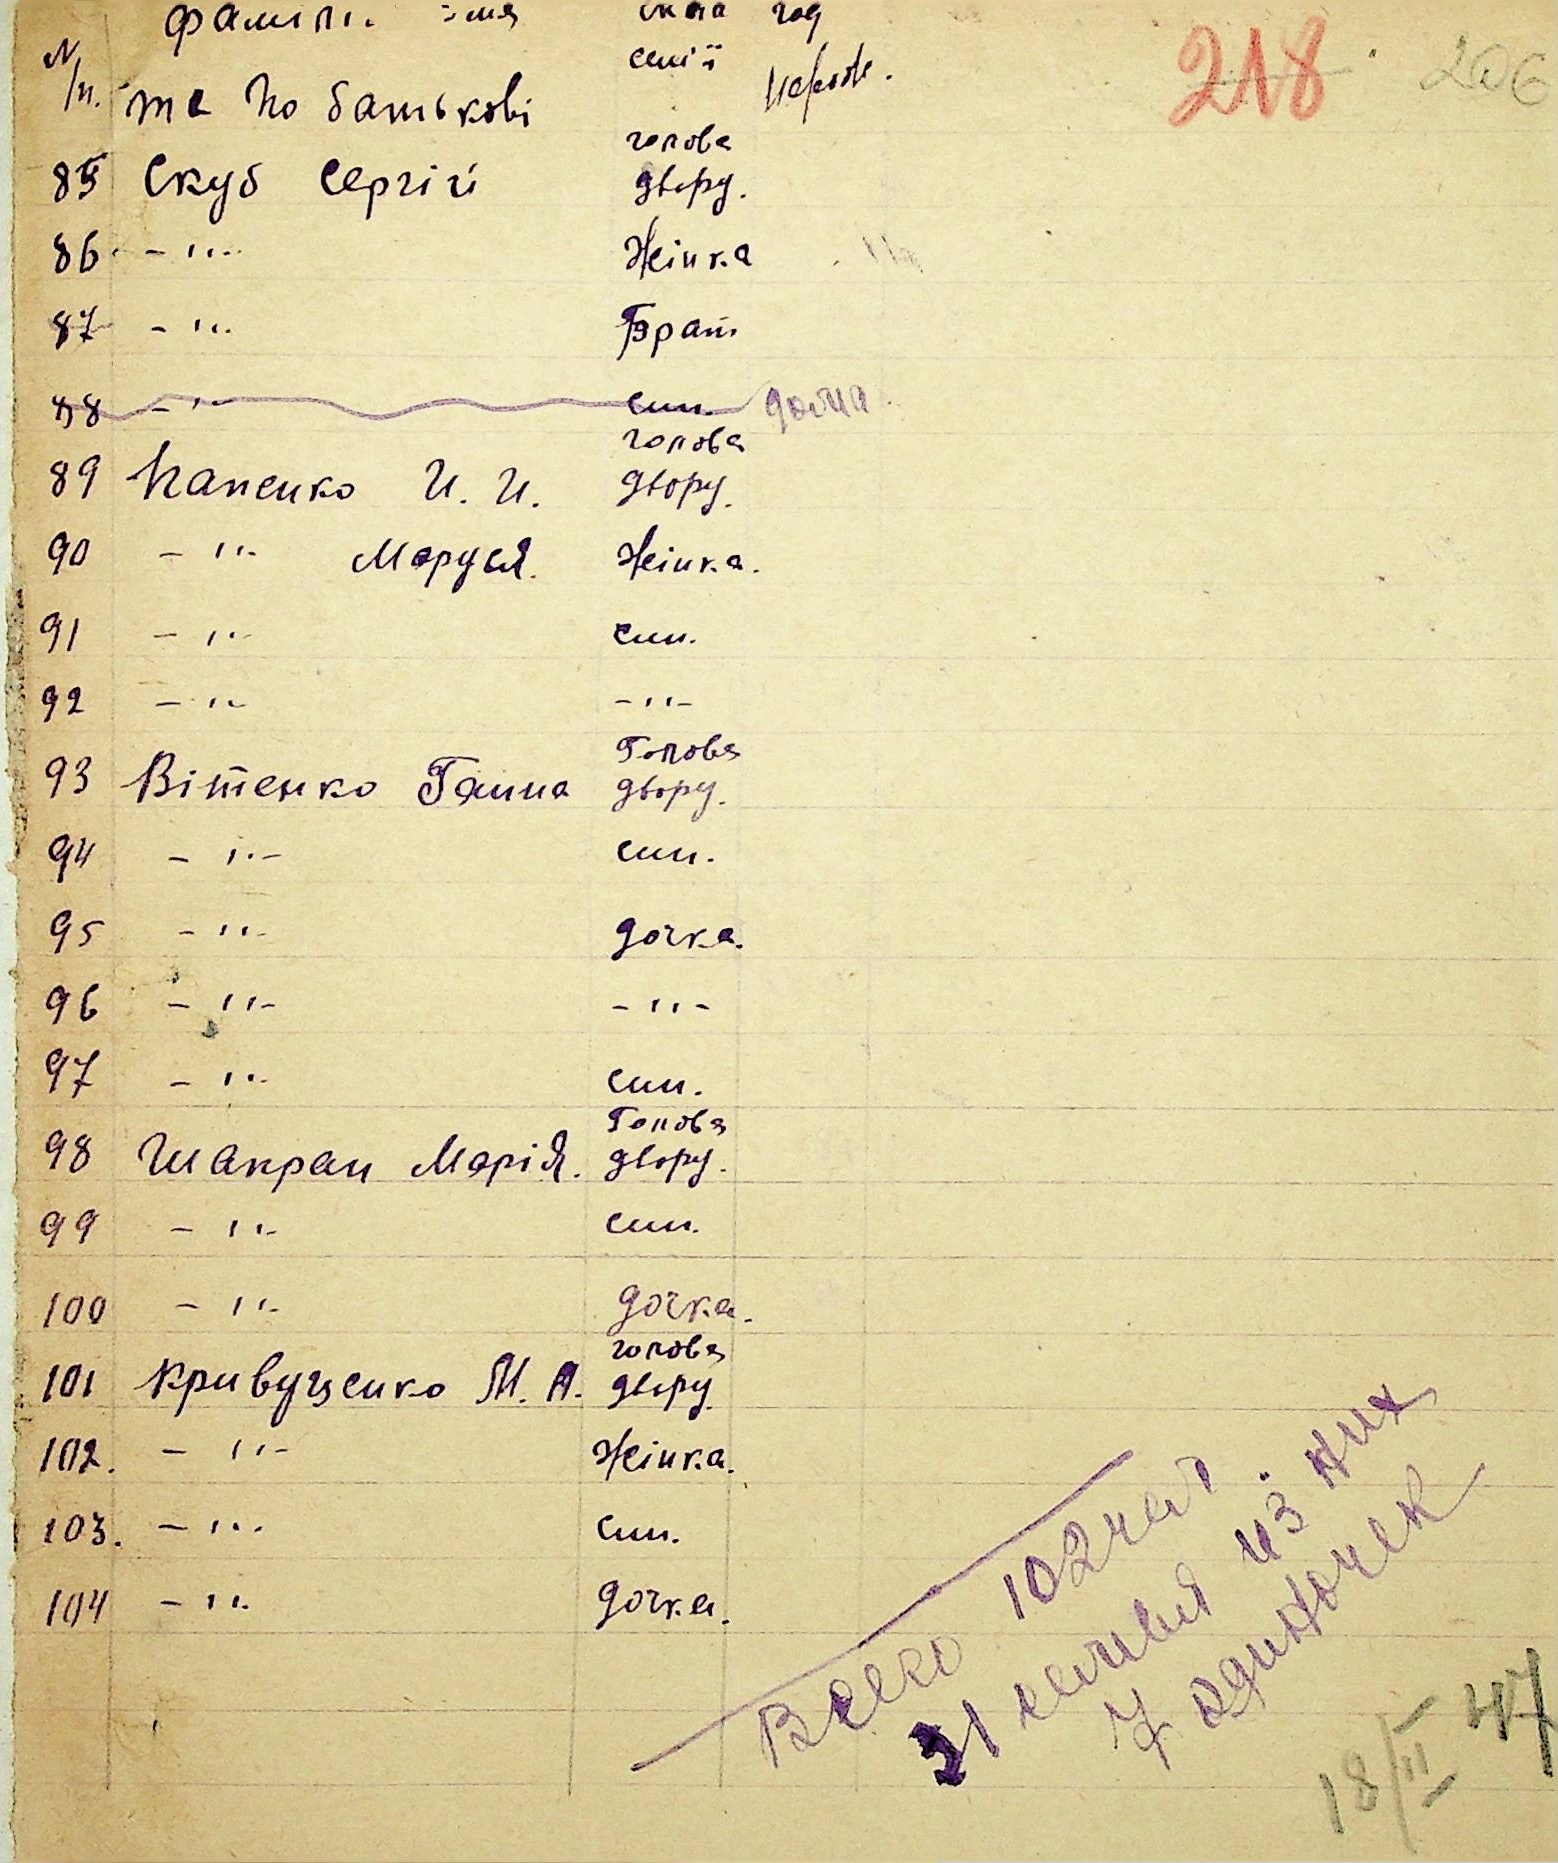 N/п. фаміл. імя склад год
сем'ї народж.
та по батькові
218 206
85 Скуб Сергій голова двору.
86 - " - Жінка
87 - " - Брат
88 - " - син. дома
89 Папенко И. И. голова двору.
90 - " - Маруся. Жінка.
91 - " - син.
92 - " - - " -
93 Вітенко Ганна Голова двору.
94 - " - син.
95 - " - дочка.
96 - " - - " -
97 - " - син.
98 Шакран Марія. Голова двору.
99 - " - син.
100 - " - дочка.
101 Кривущенко М. А. голова двору
102. - " - Жінка.
103. - " - син.
104 - " - дочка.
Всего 102 чел.
31 семья из них
7 одиночек
18/II 47